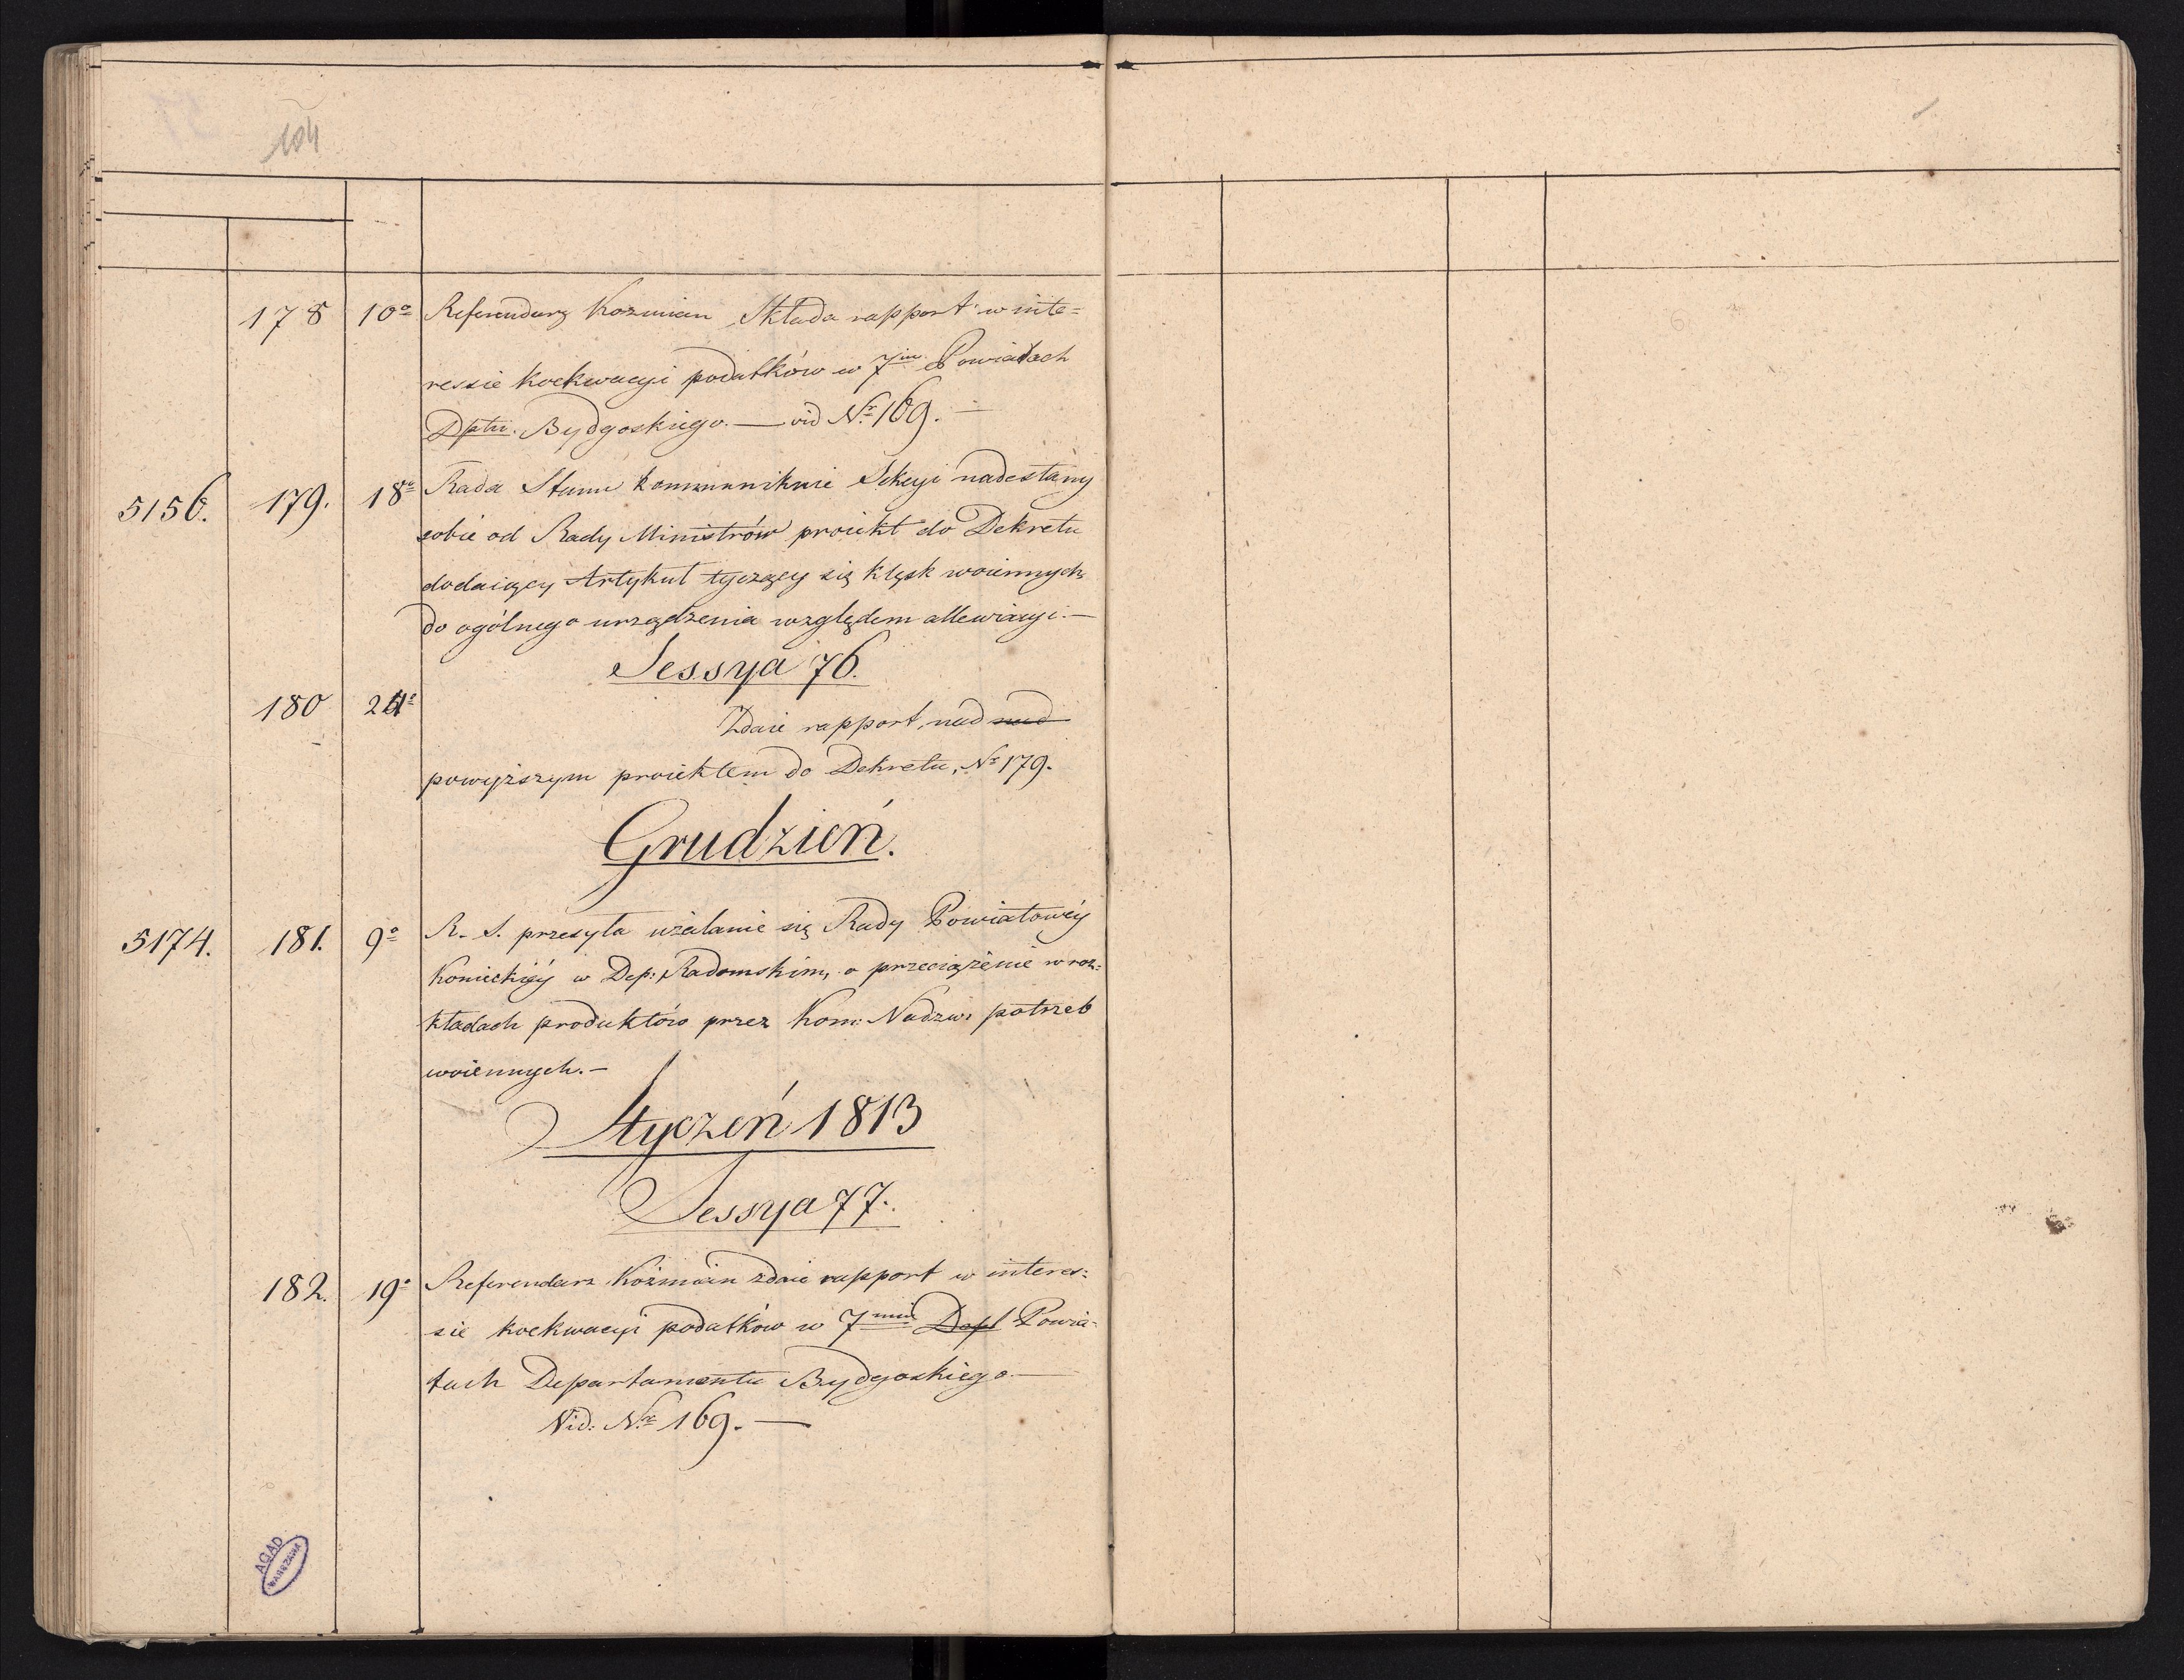 104
178 10º Referendarz Kozmian Składa rapport w inte=
ressie koekwacyi podatków w 7iu Powiatach
Dptu. Bydgoskiego. — vid Nr 169. —
5156. 179. 18º Rada Stanu kommunikuie Sekcyi nadesłany
sobie od Rady Ministrów proiekt do Dekretu
dodaiący Artykuł tyczący się klęsk woiennych
do ogólnego urządzenia względem allewiacyi. —
Sessya 76.
180 Zdaie rapport, nad nad
powyższym proiektem do Dekretu, Nr 179.
Grudzień.
5174. 181. 9º R. S. przesyła użalanie się Rady Powiatowéy
Konieckiéy w Dep: Radomskim, o przeciążenie w roz=
kładach produktów przez Kom: Nadzw: potrzeb
woiennych. —
Styczeń 1813
Sessya 77.
182. 19º Referendarz Koźmian zdaie rapport w interes=
sie koekwacyi podatków w 7miu Dept Powia=
tach Departamentu Bydgoskiego —
Vid: Nr 169. —
AGAD
WARSZAWA